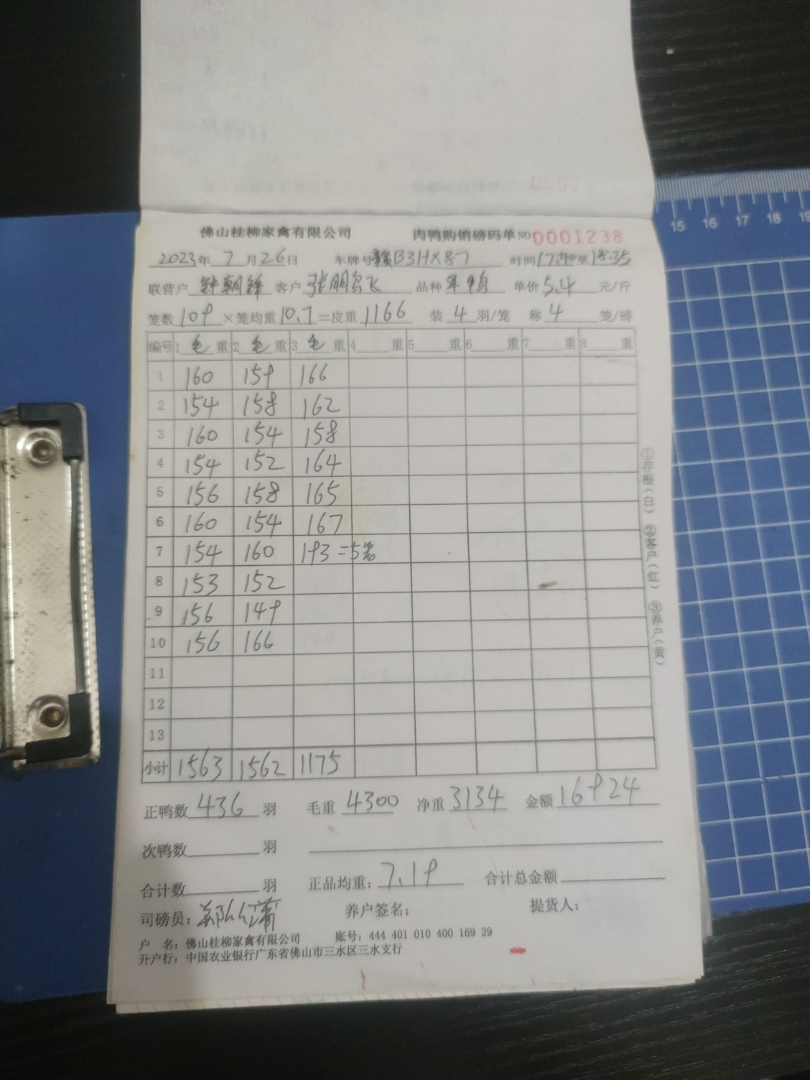 佛山桂柳家禽有限公司 肉鸭购销磅码单 NO 0001238
2023年 7 月 26 日 车牌号 时间 17:40至18:35
联营户 钟朝锋 客户 品种 单价 5.4 元/斤
笼数 109 ×笼均重 10.7 =皮重 1166 装 4 羽/笼 称 4 笼/磅
编号 1 毛 重 2 毛 重 3 毛 重 4 重 5 重 6 重 7 重 8 重
1 160 159 166
2 154 158 162
3 160 154 158
4 154 152 164
5 156 158 165
6 160 154 167
7 154 160 193 =5笼
8 153 152
9 156 149
10 156 166
11
12
13
小计 1563 1562 1175
正鸭数 436 羽 毛重 4300 净重 3134 金额 16924
次鸭数 羽
合计数 羽 正品均重: 7.19 合计总金额
司磅员: 养户签名: 提货人:
户 名: 佛山桂柳家禽有限公司 账号: 444 401 010 400 169 29
开户行: 中国农业银行广东省佛山市三水区三水支行
①存根(白) ②客户(红) ③养户(黄)
15 16 17 18 19